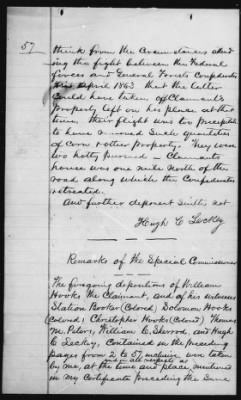 57
think from the circumstances attend
ing the fight between the Federal
forces and General Forests Confederates
in April 1863 that the latter
could have taken off Claimants
property left on his place at this
time, their flight was too precipitate
to have removed such quantities
of corn & other property. They were
too hotly pursued — Claimants
house was one mile north of the
road along which the Confederates
retreated.
And further deponent saith not
Hugh C Leckey
Remarks of the Special Commissioner
The foregoing depositions of William
Hooks the Claimant, and of his witnesses
Station Booker (Colored) Solomon Hooks
(Colored) Christopher Hooks (Colored) Thomas
M. Peters, William C. Sherrod, and Hugh
C Leckey, contained in the preceding
pages from 2 to 57, inclusive were taken
and in all respects as
by me, at the time and place, mentioned
in my Certificate preceding the same